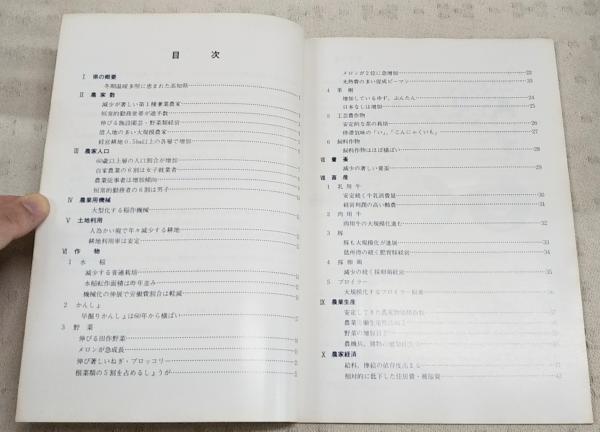 目 次
I 県の概要
冬期温暖多照に恵まれた高知県
II 農家数
減少が著しい第1種兼業農家
恒常的勤務世帯が過半数
伸びる施設園芸・野菜類経営
借入地の多い大規模農家
経営耕地0.5ha以上の各層で増加
III 農家人口
60歳以上層の人口割合が増加
自家農業の6割は女子就業者
農業従事者は増加傾向
恒常的勤務者の6割は男子
IV 農業用機械
大型化する稲作機械
V 土地利用
人為かい廃で年々減少する耕地
耕地利用率は安定
VI 作物
1 水稲
減少する普通栽培
水稲転作面積は昨年並み
機械化の伸展で労働費割合は軽減
2 かんしょ
早掘りかんしょは60年から横ばい
3 野菜
伸びる田作野菜
メロンが急成長
伸び著しいねぎ・ブロッコリー
根菜類の5割を占めるしょうが
メロンが2位に急増加 22
光熱費の多い促成ピーマン 23
4 果樹
増加しているゆず、ぶんたん 24
日本なしは増加 25
5 工芸農作物
安定的な茶の栽培 26
停滞気味の「い」、「こんにゃくいも」 27
6 飼料作物
飼料作物はほぼ横ばい 28
VII 養蚕
減少の著しい養蚕 29
VIII 畜産
1 乳用牛
安定続く牛乳消費量 30
経営利潤の高い酪農 31
2 肉用牛
肉用牛の大規模化進む 32
3 豚
豚も大規模化が進展 33
低所得の続く肥育豚経営 34
4 採卵鶏
減少の続く採卵鶏経営 35
5 ブロイラー
大規模化するブロイラー飼養 36
IX 農業生産
農業労働生産性
野菜の増加
X 農家経済
給料、俸給の依存度高まる
相対的に低下した住居費・被服費